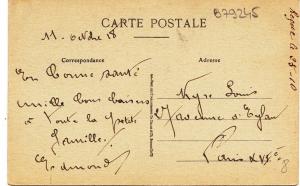 CARTE POSTALE
B79245
11. Octobre 18
Correspondance
Adresse
En bonne santé
mille bons baisers
à toute la petite
famille.
Edmond
Louis
27 avenue d'Eylau
Paris XVIe